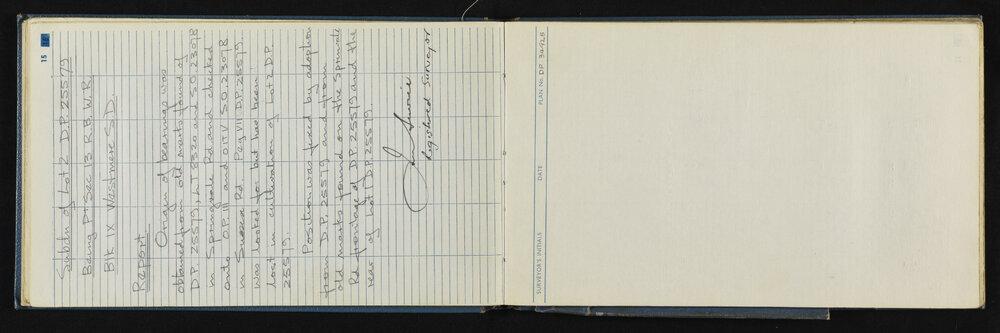 15
Subdn of Lot 2 D.P. 25579
Being Pt Sec 13 R.B. W.R.
Blk IX Westmere S.D.
Report
Origin of bearings was
obtained from old marks found of
D.P. 25579, LT 8320 and S.O. 23098
in Springvale Rd and checked
onto O.P. III and OIT V S.O. 23098
in Sussex Rd. Peg VII D.P. 25579
was looked for but had been
lost in cultivation of Lot 2 D.P.
25579.
Position was fixed by adoption
from D.P. 25579 and from
old marks found on the Springvale
Rd frontage of D.P. 25579 and the
rear of Lot 1 D.P. 25579.
Registered Surveyor
SURVEYOR'S INITIALS
DATE
PLAN No. D.P. 34928